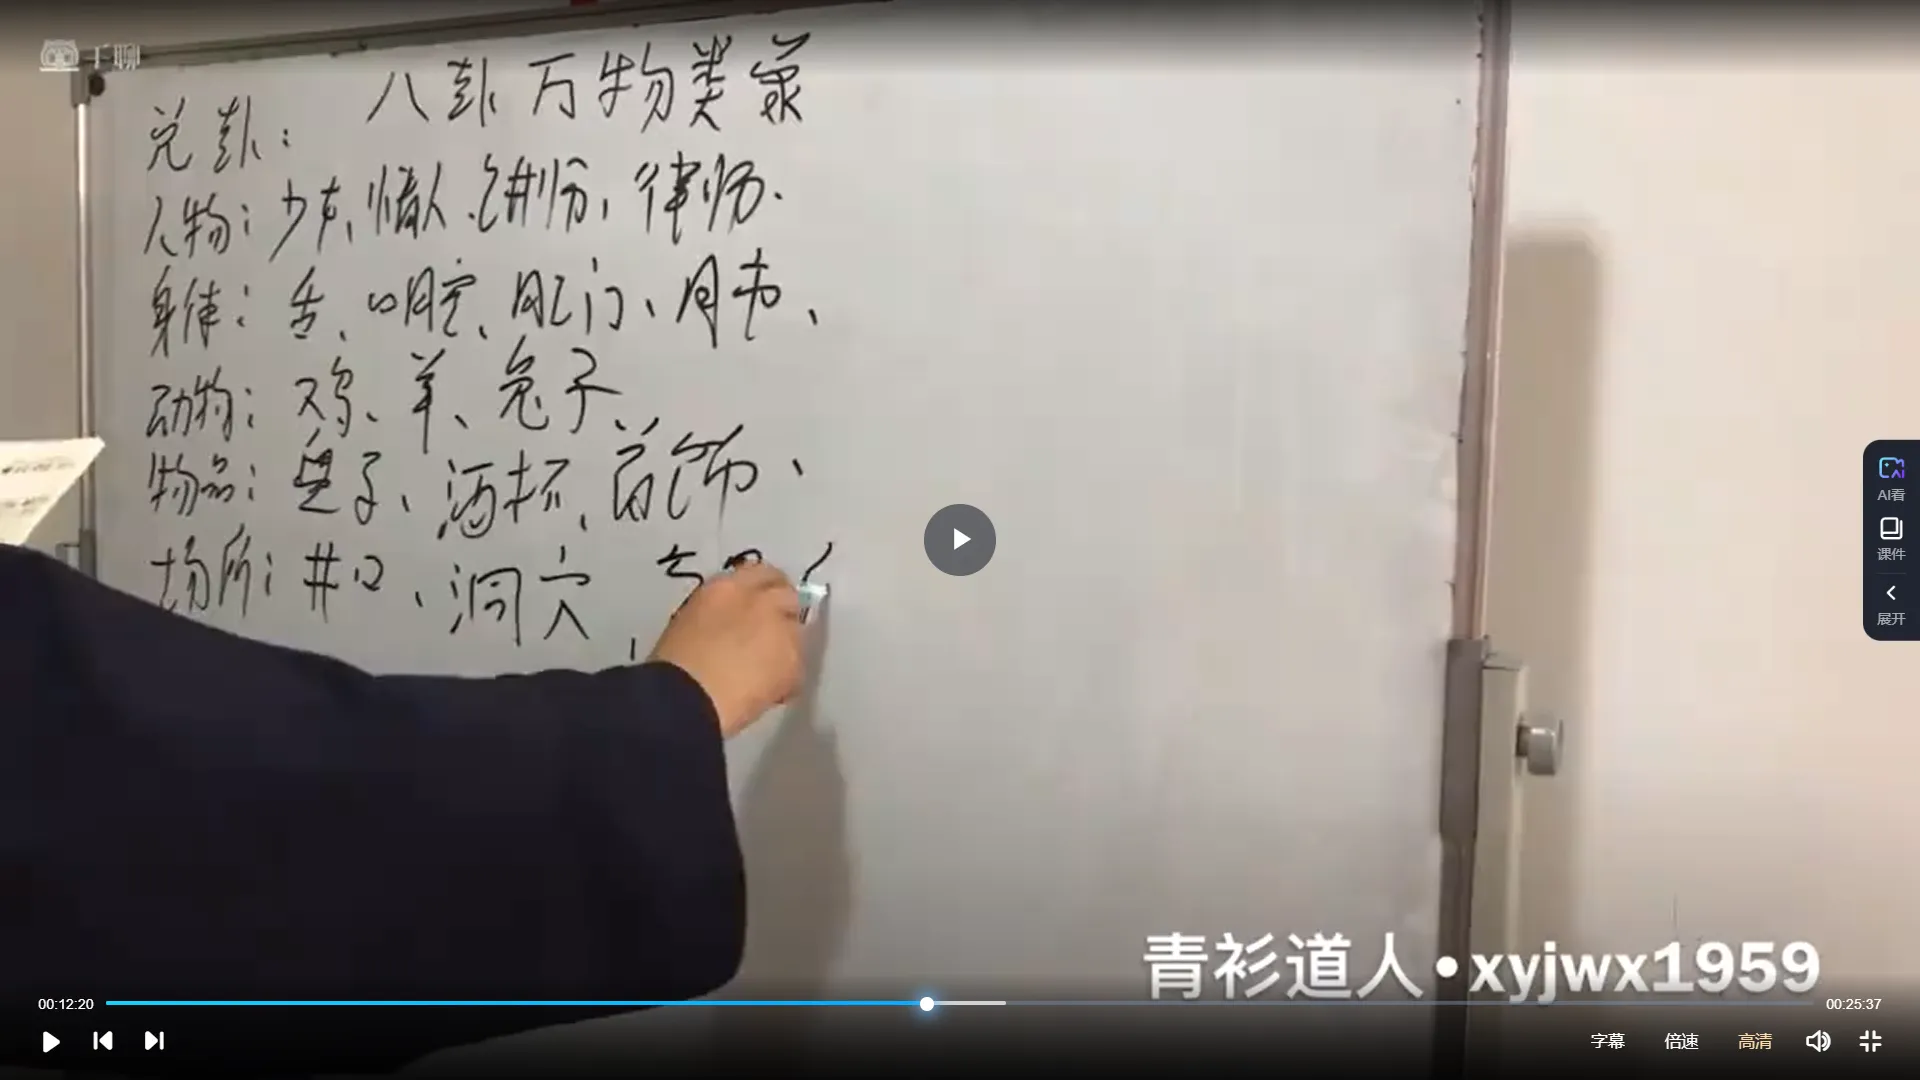 千聊
八卦万物类象
兑卦:
人物:少女、情人、讲师、律师.
身体:舌、口腔、肛门、肺、
动物:鸡、羊、兔子、
物品:盘子、酒杯、首饰、
场所:井口、洞穴、
AI看
课件
展开
青衫道人•xyjwx1959
00:12:20
00:25:37
字幕
倍速
高清